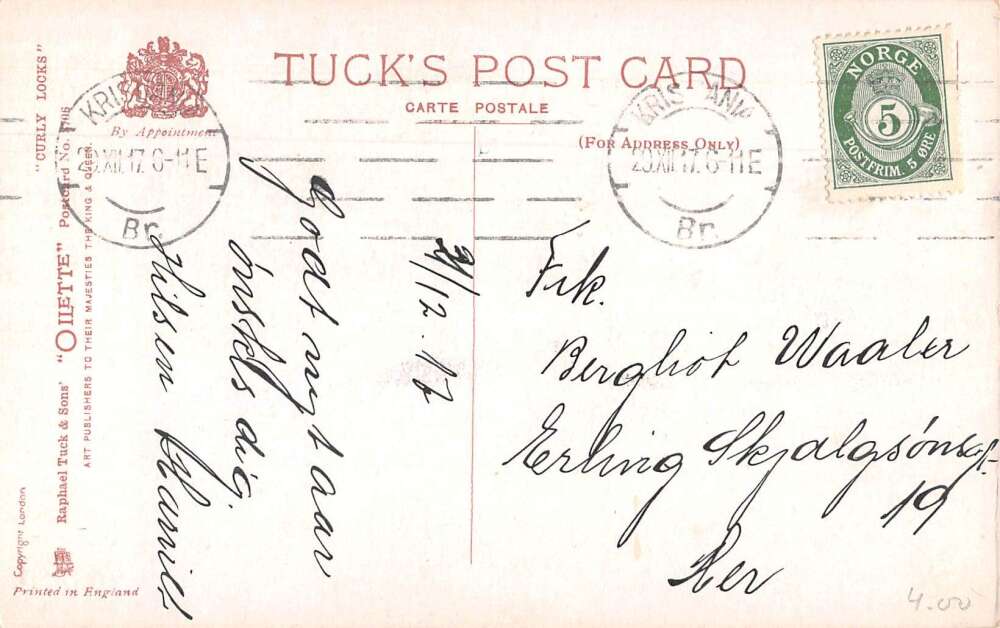 TUCK'S POST CARD
CARTE POSTALE
(FOR ADDRESS ONLY)
By Appointment
"CURLY LOCKS"
Raphael Tuck & Sons' "OILETTE" Postcard No.
ART PUBLISHERS TO THEIR MAJESTIES THE KING & QUEEN.
Copyright London
Printed in England
NORGE
5
POSTFRIM. 5 ØRE
XII.17.6-11E
Br.
XII.17.6-11E
Br.
Godt nyt aar
önskes dig.
Hilsen
/12.17
Frk.
Bergliot Waaler
Erling Skjalgsönsgt.
19
Her
4.00